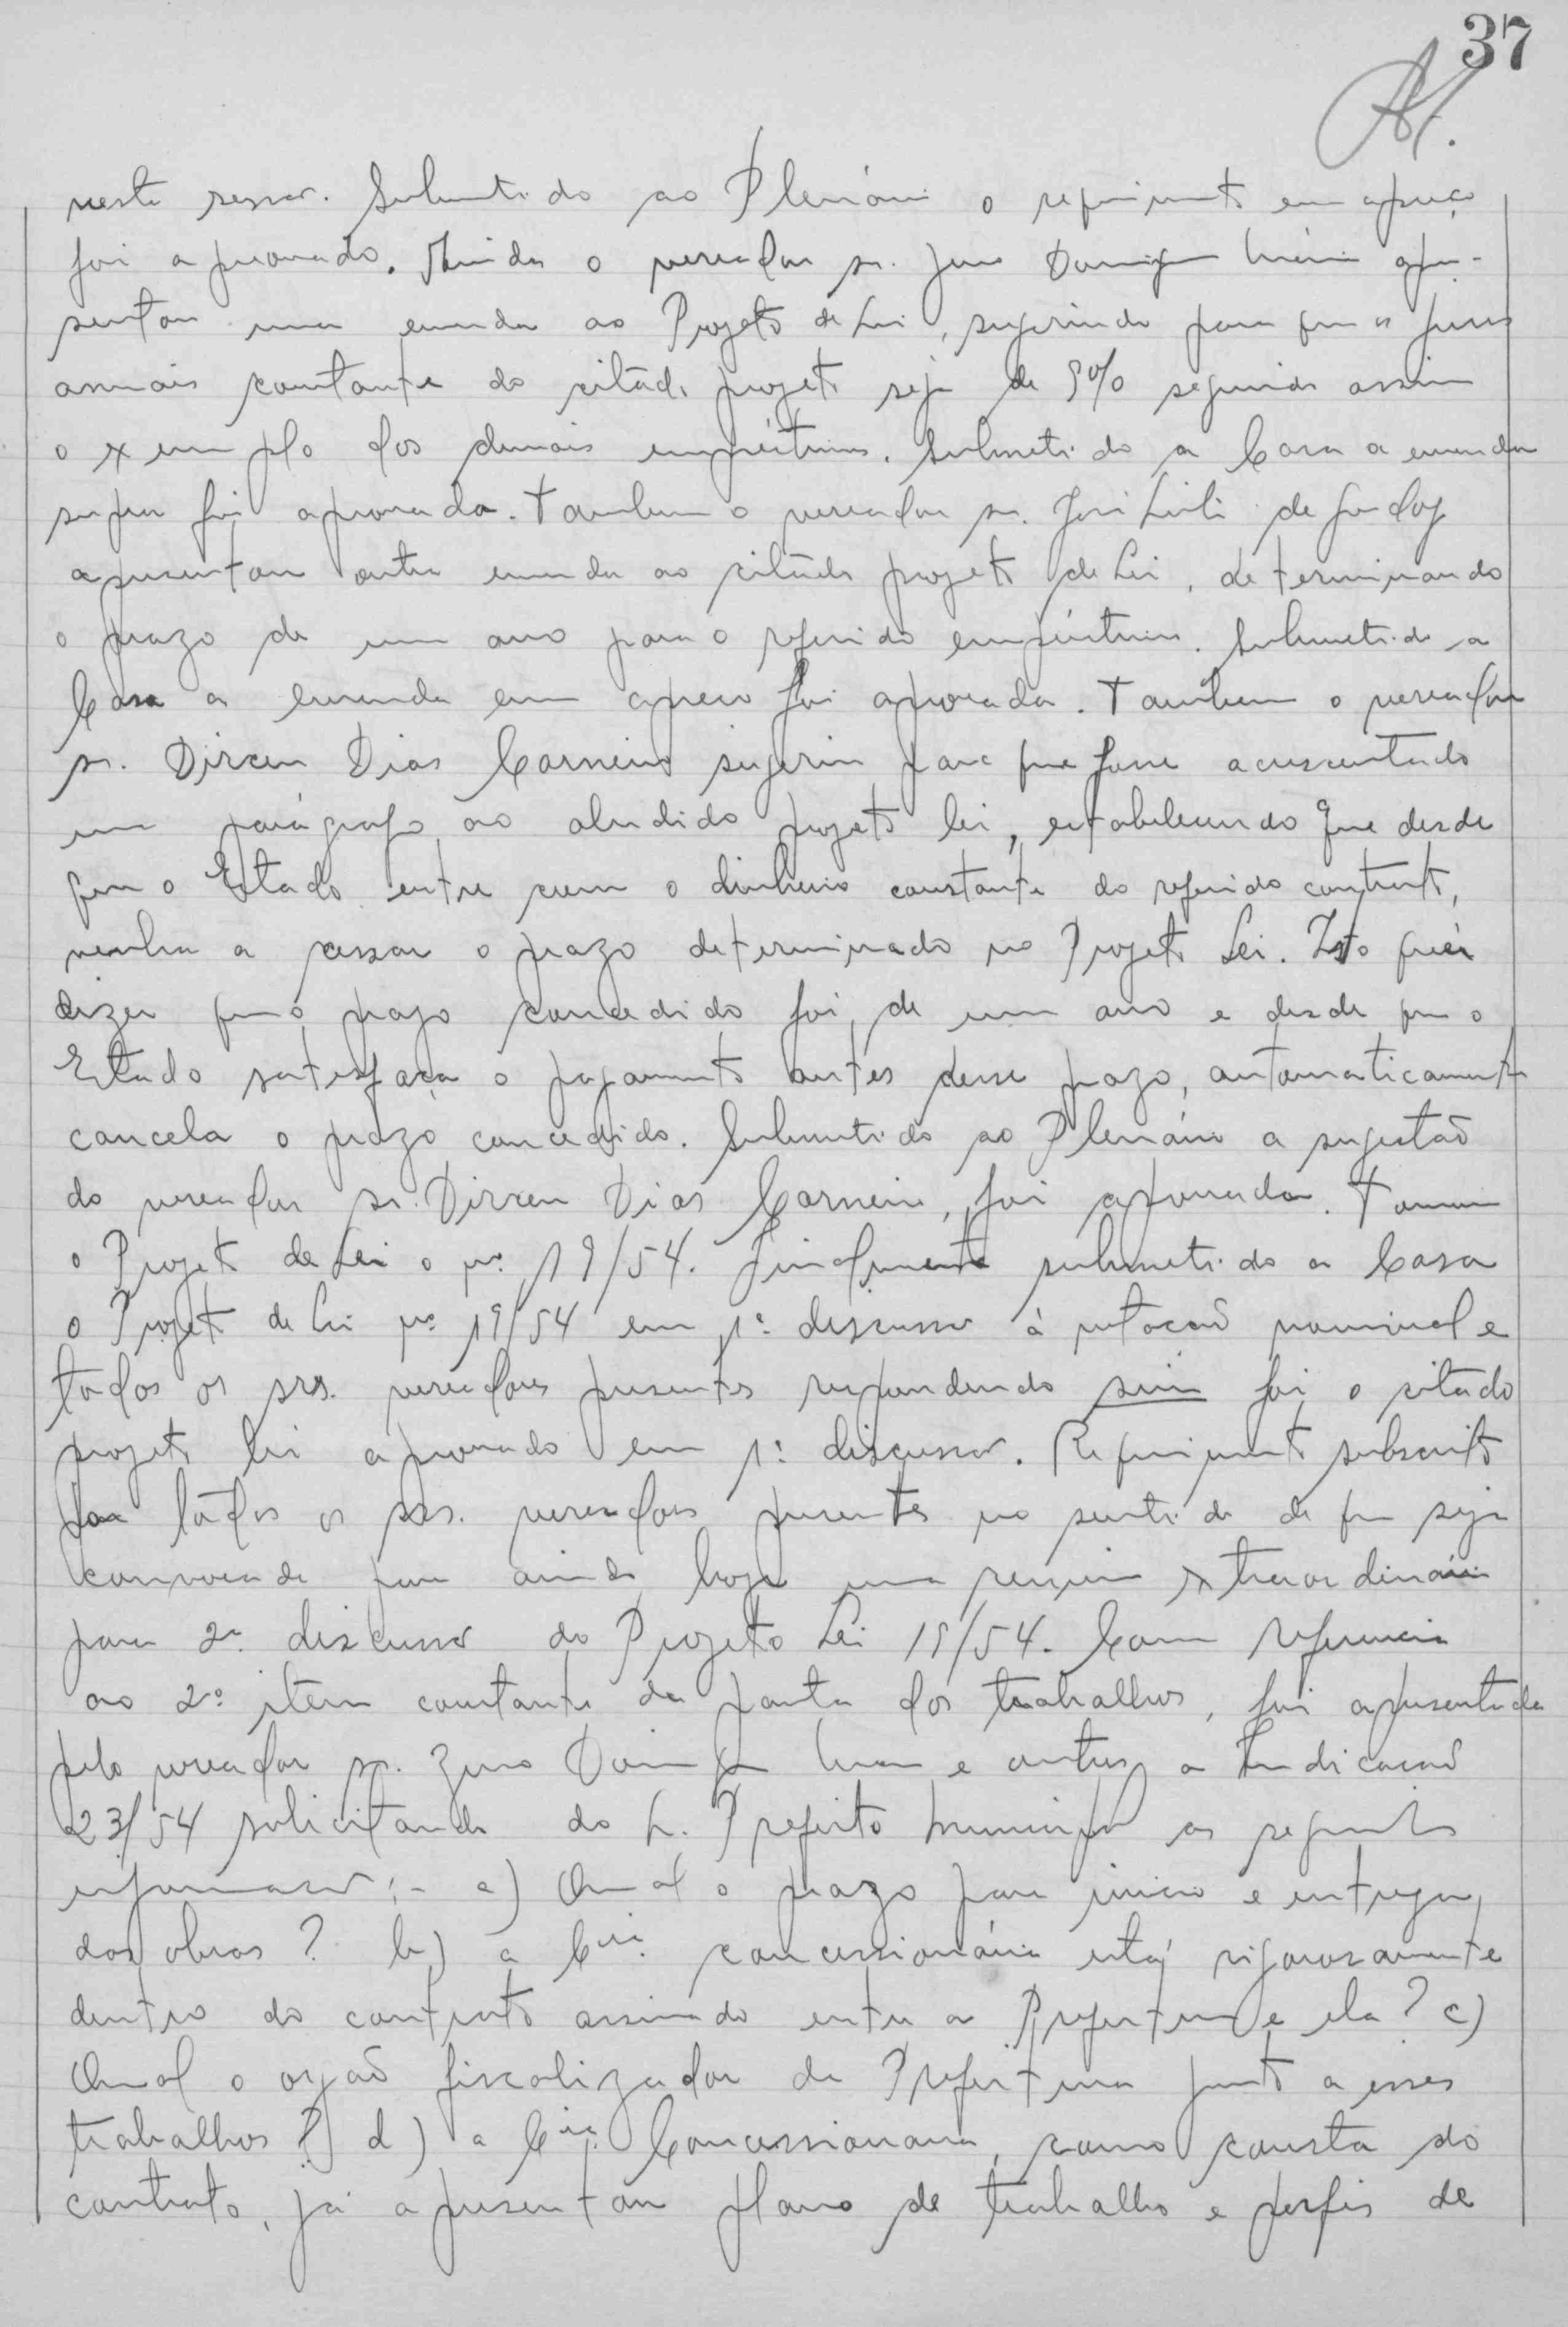 37
nesta sessão. Submetido ao Plenário o requerimento em apreço
foi aprovado. Ainda o vereador sr. Domingos apre-
sentou uma emenda ao Projeto de Lei, sugerindo para que os juros
anuais constante do citado projeto seja de 9% seguindo assim
o exemplo dos demais empréstimos. Submetido a Casa a emenda
supra foi aprovada. Tambem o vereador sr. José de Godoy
apresentou outra emenda ao citado projeto de Lei, determinando
o prazo de um ano para o referido empréstimo. Submetido a
Casa a emenda em apreço foi aprovada. Tambem o vereador
sr. Dirceu Dias Carneiro sugeriu para que fosse acrescentado
um parágrafo ao aludido projeto lei, estabelecendo que desde
que o Estado entre com o dinheiro constante do referido contrato,
venha a cessar o prazo determinado no Projeto Lei. Isto quér
dizer que o prazo concedido foi de um ano e desde que o
Estado satisfaça o pagamento antes desse prazo, automaticamente
cancela o prazo concedido. Submetido ao Plenário a sugestão
do vereador sr. Dirceu Dias Carneiro, foi aprovada. Tomou
o Projeto de Lei o nº 19/54. Finalmente submetido a Casa
o Projeto de Lei nº 19/54 em 1ª discussão à votação nominal e
todos os srs. vereadores presentes respondendo sim foi o citado
projeto lei aprovado em 1ª discussão. Requerimento subscrito
por todos os srs. vereadores presentes no sentido de que seja
convocada para ainda hoje uma sessão extraordinária
para 2ª discussão do Projeto Lei 19/54. Com referencia
ao 2º item constante da pauta dos trabalhos, foi apresentada
pelo vereador sr. Domingos e outros a Indicação
23/54 solicitando do Prefeito Municipal as seguintes
informações:- a) Qual o prazo para inicio e entrega
das obras? b) a Cia. concessionária está rigorosamente
dentro do contrato assinado entre a Prefeitura e ela? c)
Qual o orgaõ fiscalizador da Prefeitura junto a esses
trabalhos? d) a Cia. Concessionaria, como consta do
contrato, já apresentou plano de trabalho e perfis de